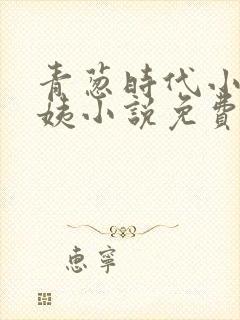 青葱時代小
姨小説免費
惠寧